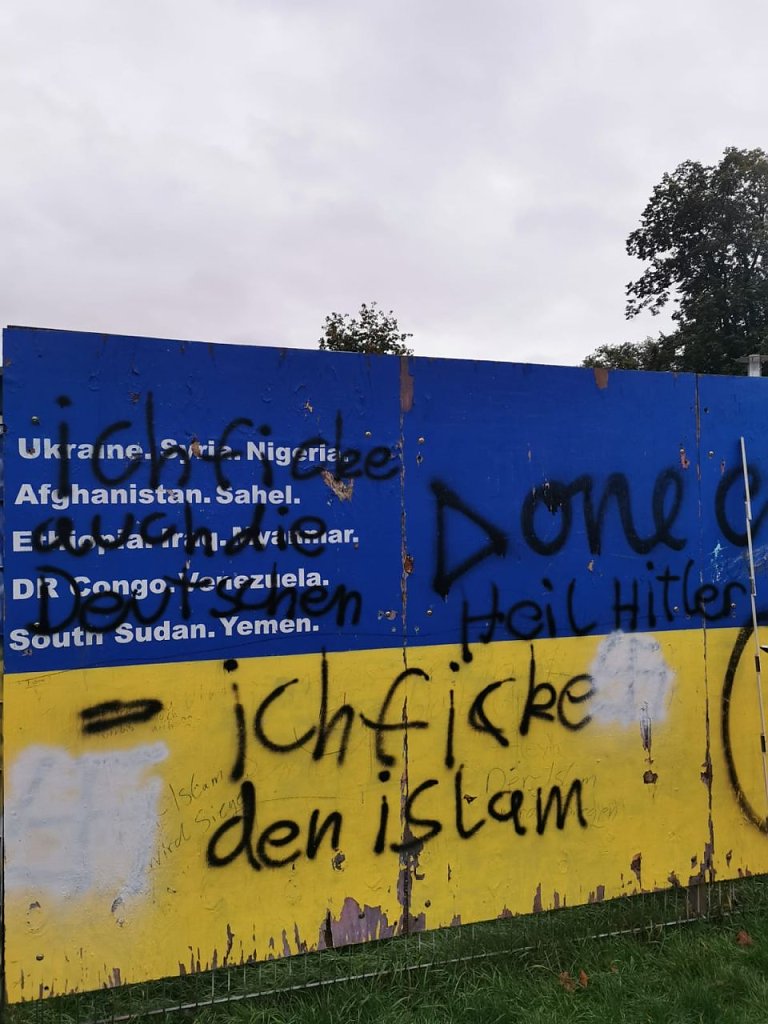 Ukraine. Syria. Nigeria.
Afghanistan. Sahel.
Ethiopia. Iraq. Myanmar.
DR Congo. Venezuela.
South Sudan. Yemen.
ich ficke
auch die
Deutschen
Done
Heil Hitler
= ich ficke
den islam
Islam
wird Siegen
Der Islam